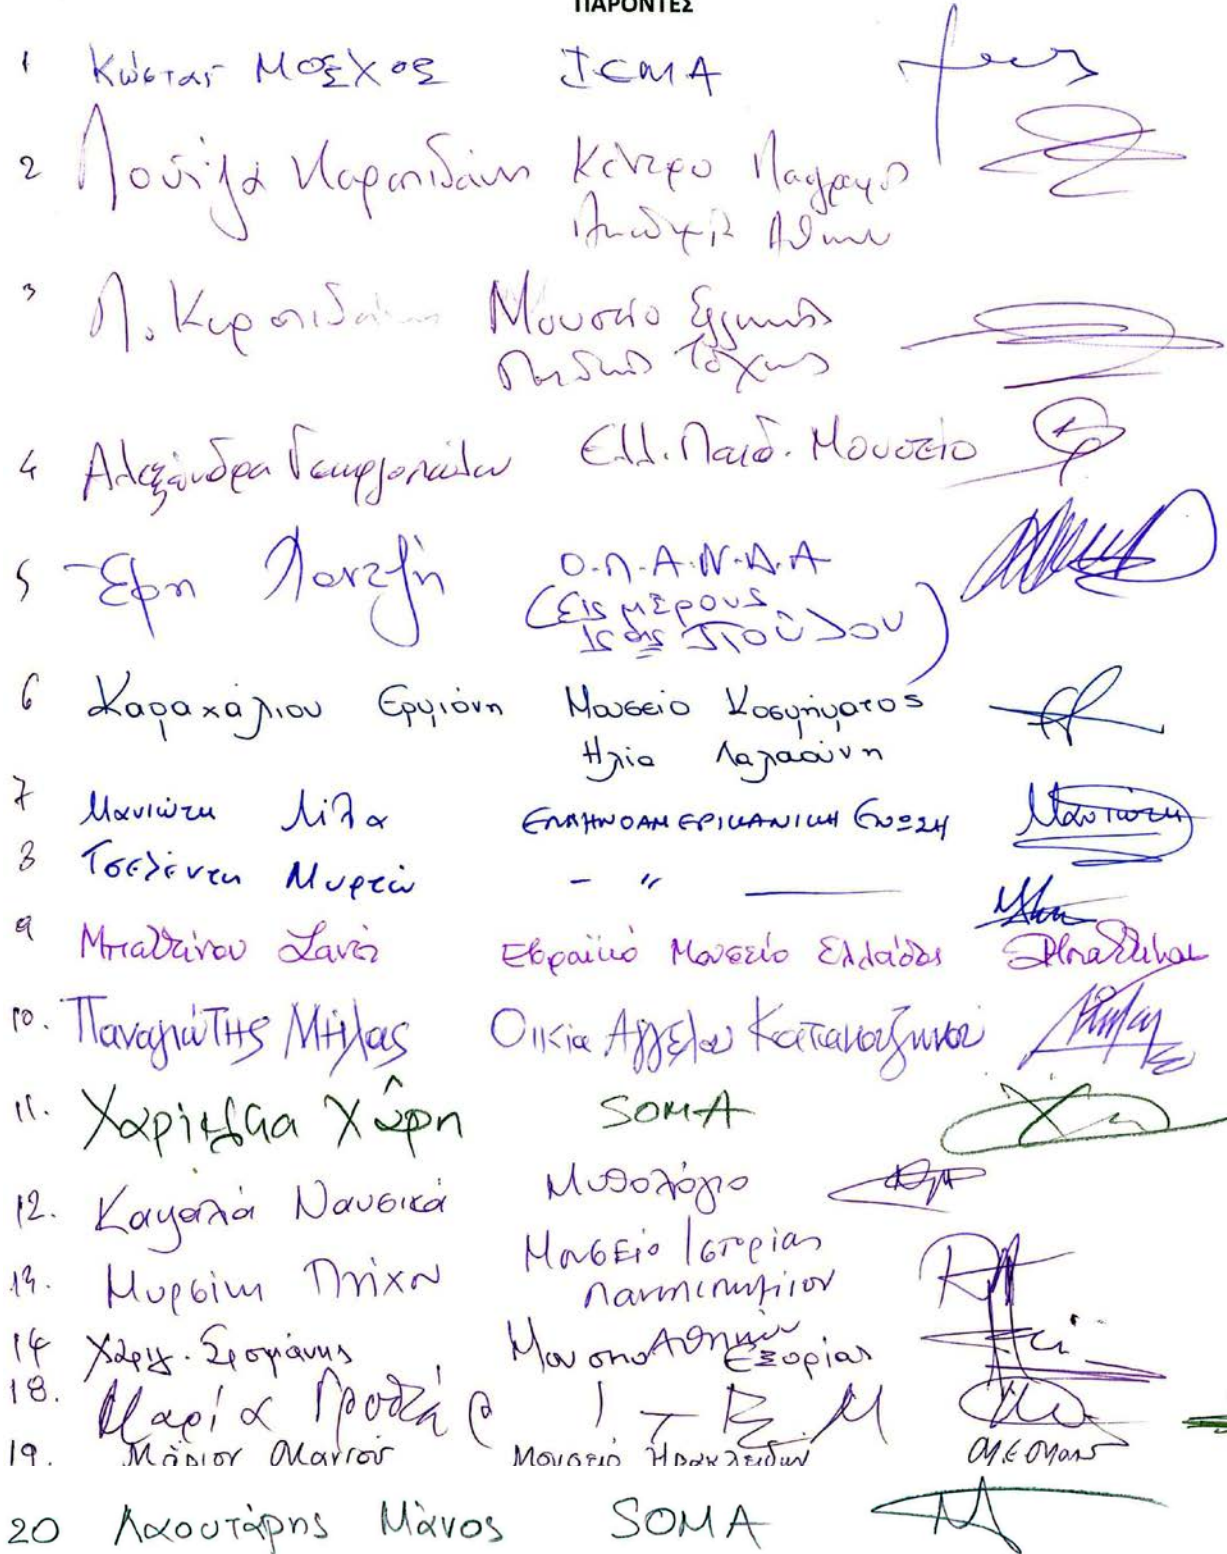 ΠΑΡΟΝΤΕΣ
1 Κώστας ΜΟΣΧΟΣ ΙCMA
2 Λουίζα Καραπιδάκη Κέντρο
Αθηνών
3 Λ. Καραπιδάκη Μουσείο Ελληνικής
Παιδικής Τέχνης
4 Αλεξάνδρα Γεωργοπούλου Ελλ. Παιδ. Μουσείο
5 Έφη Ο.Π.Α.Ν.Δ.Α
(ΕΙΣ ΜΕΡΟΥΣ
6 Καραχάλιου Ερμιόνη Μουσείο Κοσμήματος
Ηλία Λαλαούνη
7 Μανιώτη Λίλα ΕΛΛΗΝΟΑΜΕΡΙΚΑΝΙΚΗ ΕΝΩΣΗ Μανιώτη
8 Τσελέντη Μυρτώ - " -
9 Μπατίνου Ζανέτ Εβραϊκό Μουσείο Ελλάδος
10. ΠαναγιώΤΗς ΜΗλας Οικία Αγγέλου Κατακουζηνού
11. Χαρίκλεια Χώρη SOMA
12. Καμαλά Ναυσικά Μυθολόγιο
13. Μυρσίνη Πήχου Μουσείο Ιστορίας
Πανεπιστημίου
14 Χαριλ. Μουσείο Εξορίας
Αθηνών
18. Μαρία Ι Τ Β Μ
19. Μάριον Μουσείο Ηρακλειδών
20 Λαουτάρης Μάνος SOMA